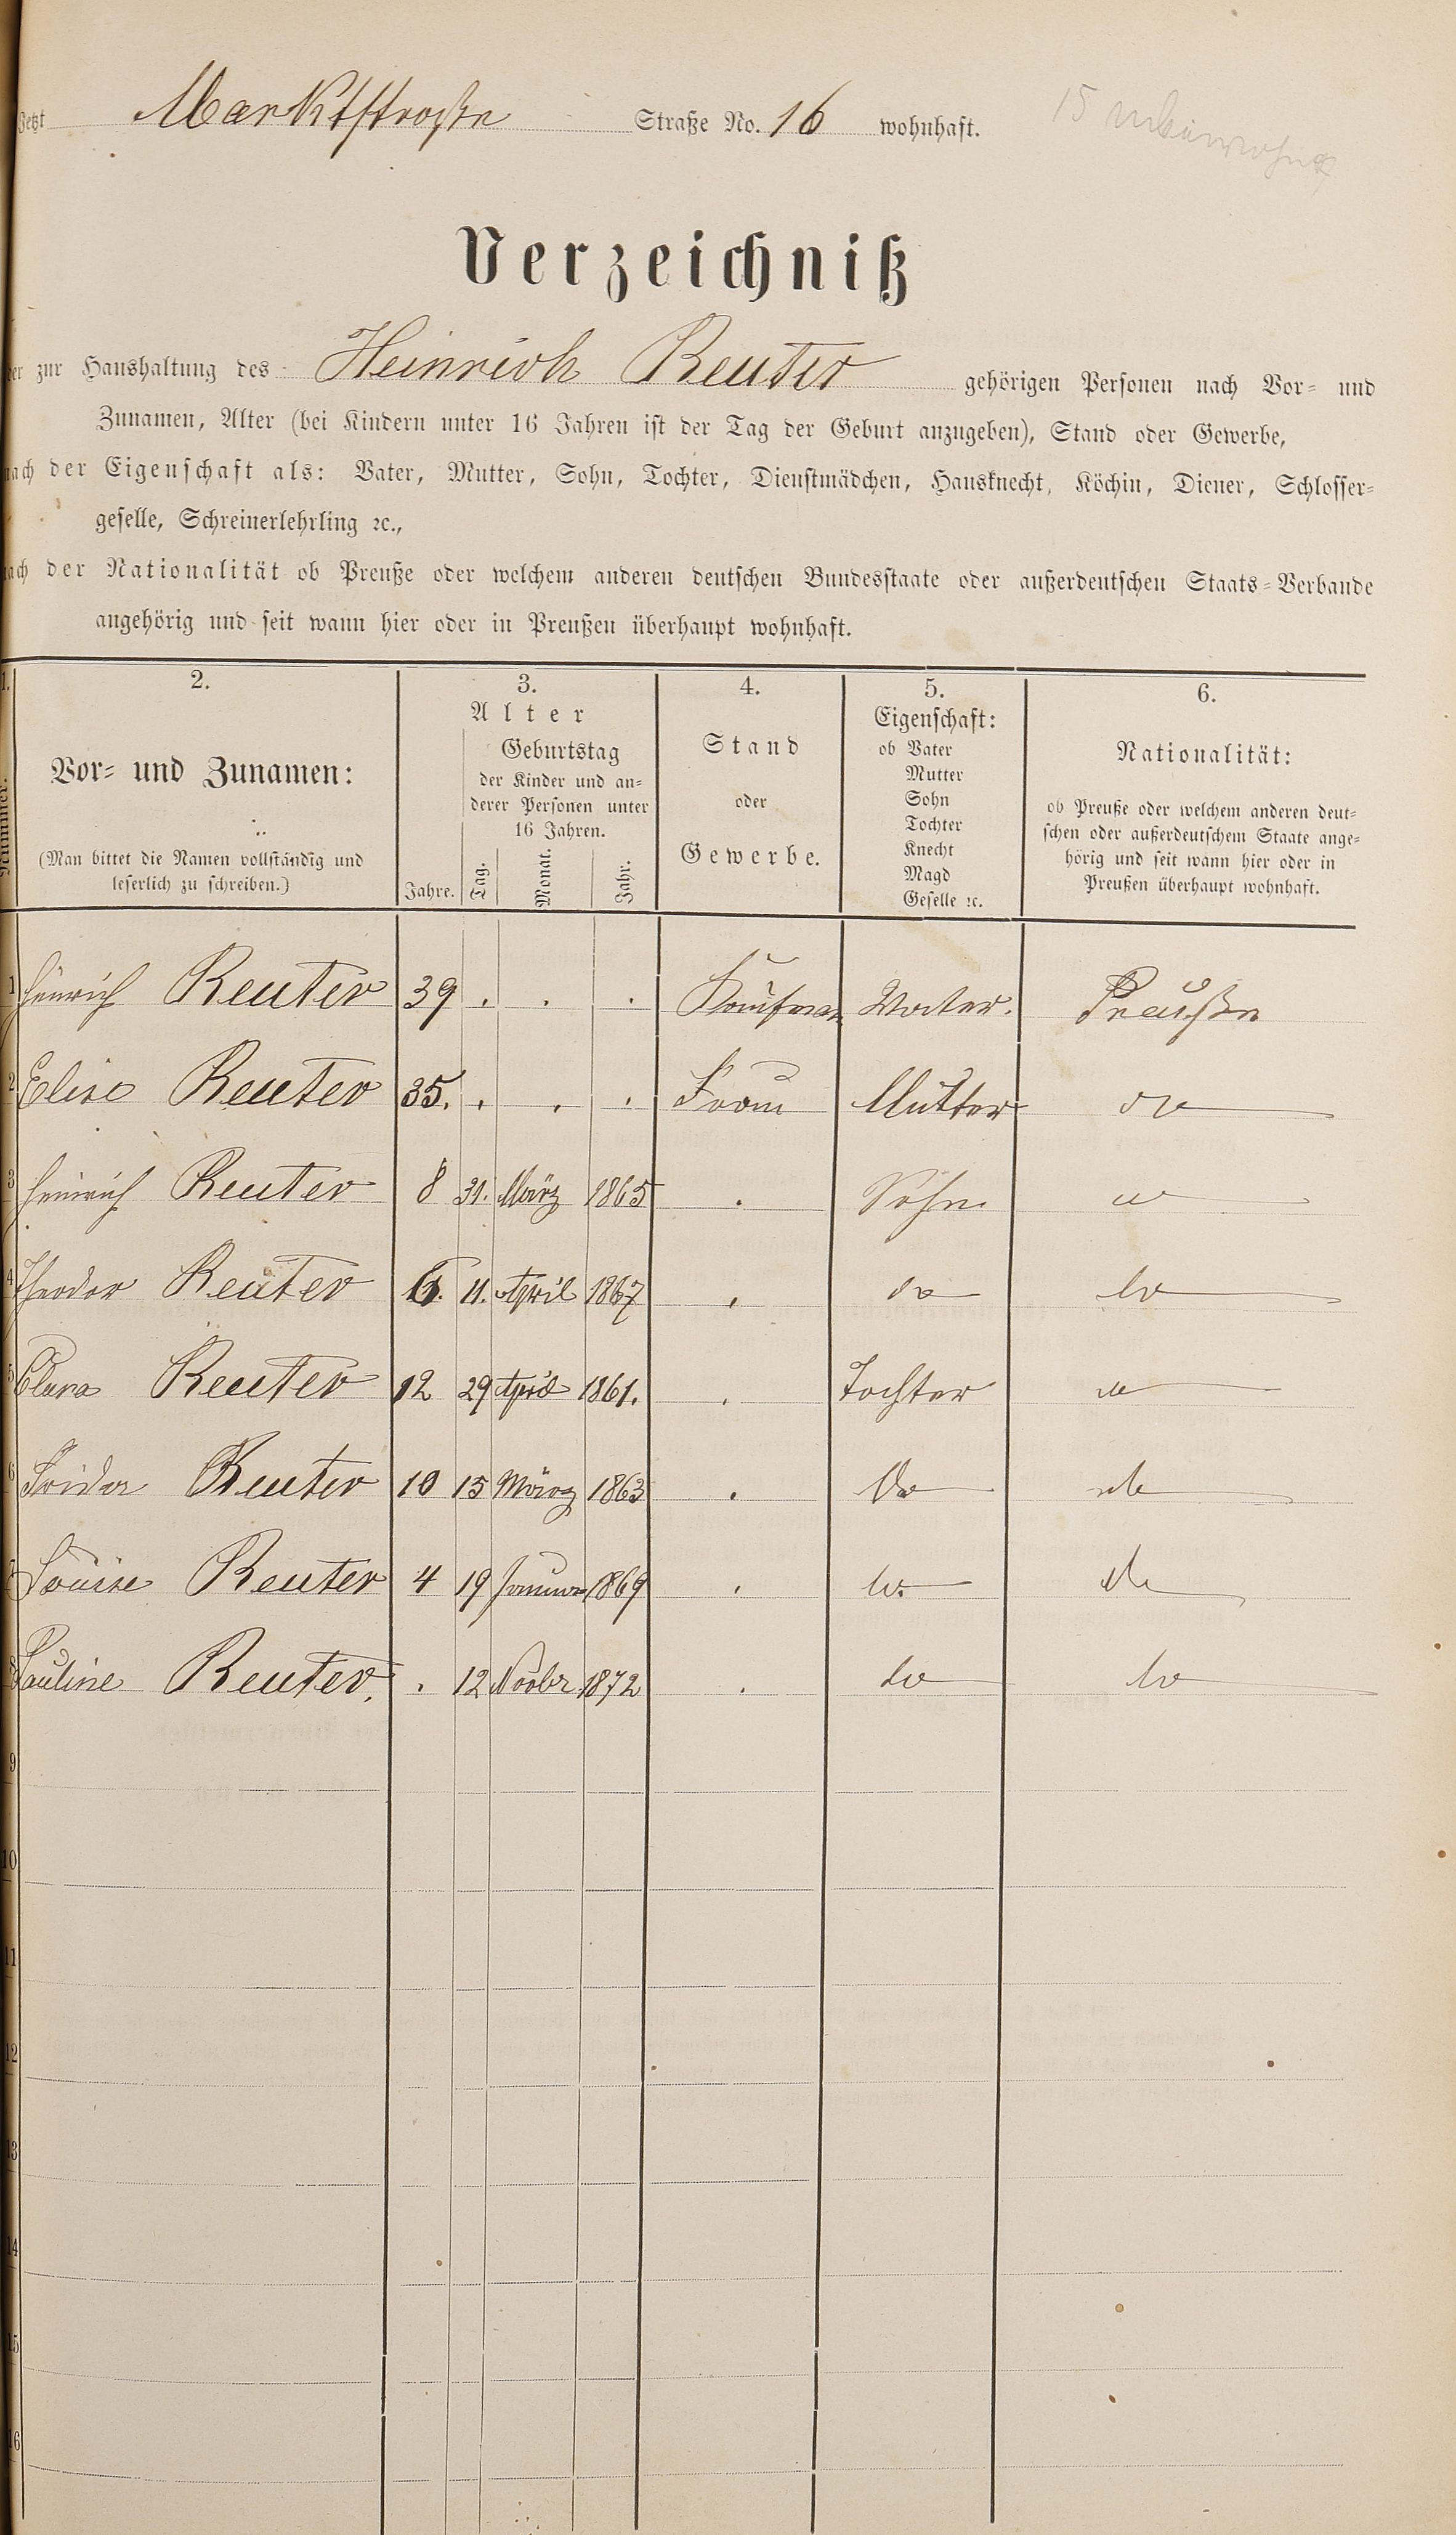 Jetzt Marktstraße Straße No. 16 wohnhaft.
15 unbewohnt
Verzeichniß
der zur Haushaltung des Heinrich Reuter gehörigen Personen nach Vor= und
Zunamen, Alter (bei Kindern unter 16 Jahren ist der Tag der Geburt anzugeben), Stand oder Gewerbe,
nach der Eigenschaft als: Vater, Mutter, Sohn, Tochter, Dienstmädchen, Hausknecht, Köchin, Diener, Schlosser=
geselle, Schreinerlehrling ꝛc.,
nach der Nationalität ob Preuße oder welchem anderen deutschen Bundesstaate oder außerdeutschen Staats=Verbande
angehörig und seit wann hier oder in Preußen überhaupt wohnhaft.
1.
Nummer.
2.
Vor= und Zunamen:
(Man bittet die Namen vollständig und
leserlich zu schreiben.)
3.
Alter
Jahre.
Geburtstag
der Kinder und an=
derer Personen unter
16 Jahren.
Tag. Monat. Jahr.
4.
Stand
oder
Gewerbe.
5.
Eigenschaft:
ob Vater
Mutter
Sohn
Tochter
Knecht
Magd
Geselle ꝛc.
6.
Nationalität:
ob Preuße oder welchem anderen deut=
schen oder außerdeutschem Staate ange=
hörig und seit wann hier oder in
Preußen überhaupt wohnhaft.
1 Heinrich Reuter 39 . . . Kaufman Vater. Preuße
2 Elise Reuter 35. . . . Frau Mutter do
3 Heinrich Reuter 8 31. März 1865 . Sohn do
4 Theodor Reuter 6. 11. April 1867 . do do
5 Clara Reuter 12 29 April 1861. . Tochter do
6 Frida Reuter 10 15 März 1863 . do do
7 Louise Reuter 4 19 Januar 1869 . do do
8 Pauline Reuter. . 12 Novbr 1872 . do do
9
10
11
12
13
14
15
16